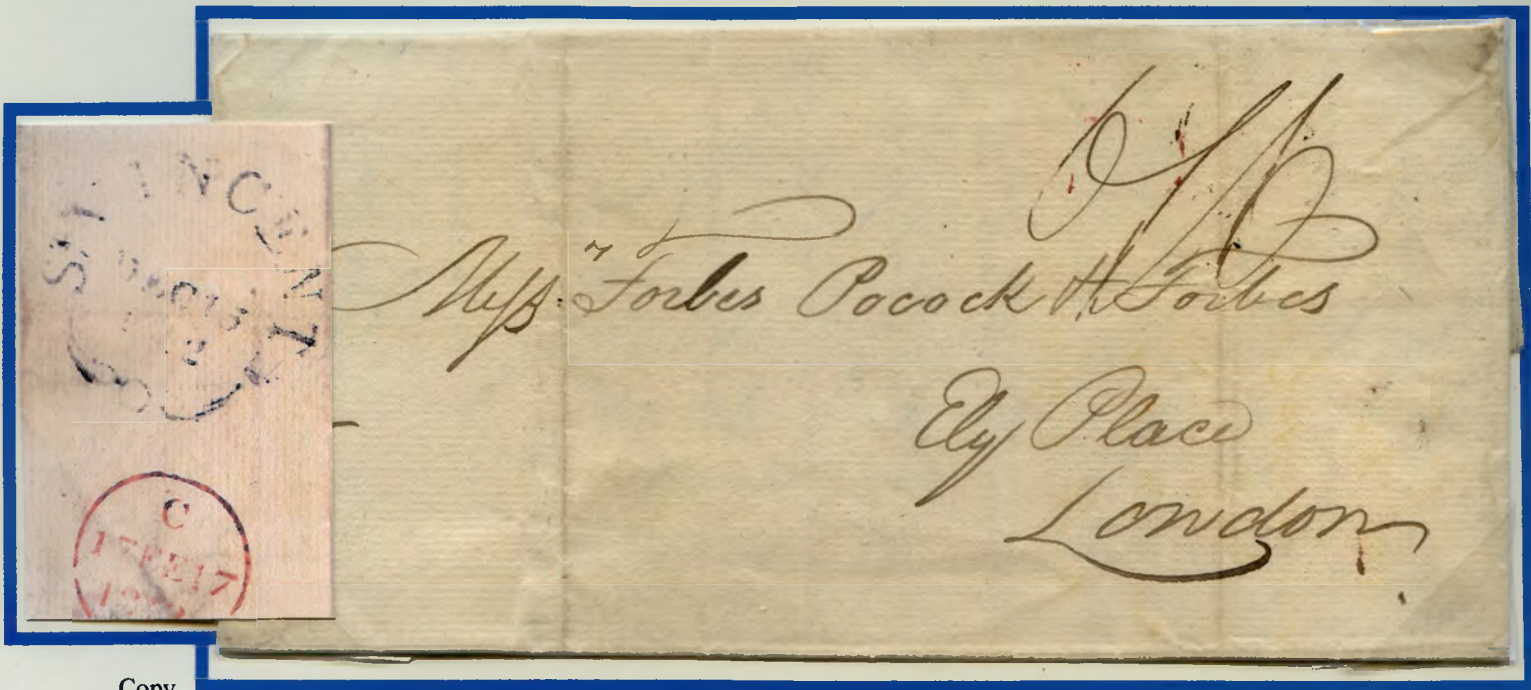 ST VINCENT
DEC 13
C
17 FE 17
Mess.rs Forbes Pocock & Forbes
Ely Place
London
Copy